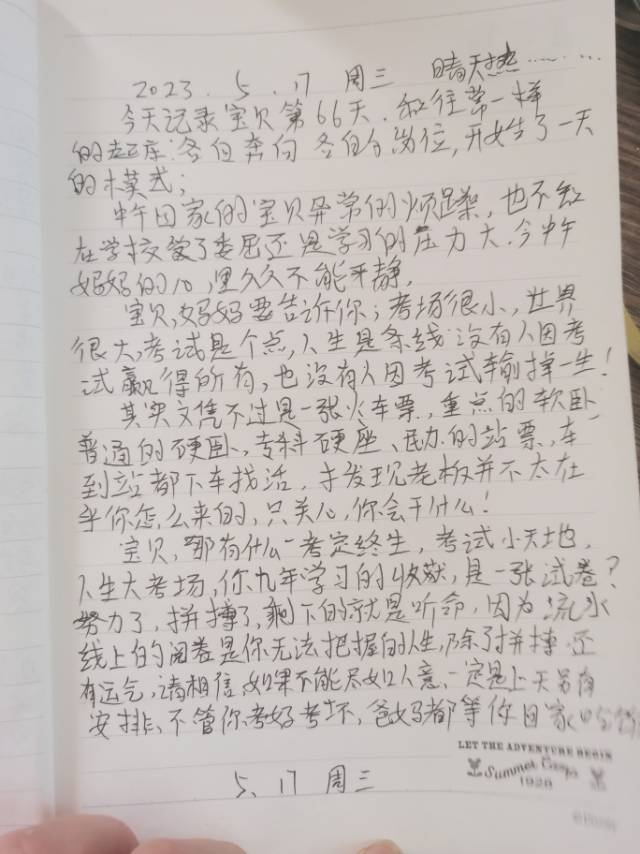 2023.5.17 周三 晴天热……
今天记录宝贝第66天.和往常一样
的起床.各自奔向各自的岗位,开始了一天
的模式;
中午回家的宝贝异常的烦躁,也不知
在学校受了委屈还是学习的压力大.今中午
妈妈的心里久久不能平静.
宝贝,妈妈要告诉你;考场很小,世界
很大,考试是个点,人生是条线没有人因考
试赢得所有,也没有人因考试输掉一生!
其实文凭不过是一张火车票,重点的软卧
普通的硬卧,专科硬座、民办的站票,车
到站都下车找活,才发现老板并不太在
乎你怎么来的,只关心,你会干什么!
宝贝,哪有什么一考定终生,考试小天地.
人生大考场,你九年学习的收获,是一张试卷?
努力了,拼搏了,剩下的就是听命,因为流水
线上的阅卷是你无法把握的人生,除了拼搏还
有运气,请相信如果不能尽如人意、一定是上天另有
安排、不管你考好考坏,爸妈都等你回家吃
LET THE ADVENTURE BEGIN
Summer Camp
1926
5、17 周三